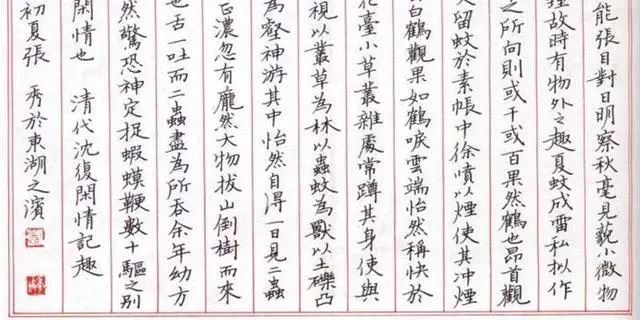 能張目對日明察秋毫見藐小微物
理故時有物外之趣夏蚊成雷私拟作
之所向則或千或百果然鶴也昂首觀
又留蚊於素帳中徐噴以煙使其冲煙
白鶴觀果如鶴唳雲端怡然稱快於
花臺小草叢雜處常蹲其身使與
視以叢草為林以蟲蚊為獸以土礫凸
為壑神游其中怡然自得一日見二蟲
正濃忽有龐然大物拔山倒樹而來
也舌一吐而二蟲盡為所吞余年幼方
然驚恐神定捉蝦蟆鞭數十驅之别
閑情也 清代沈復閑情記趣
初夏張 秀於東湖之濱